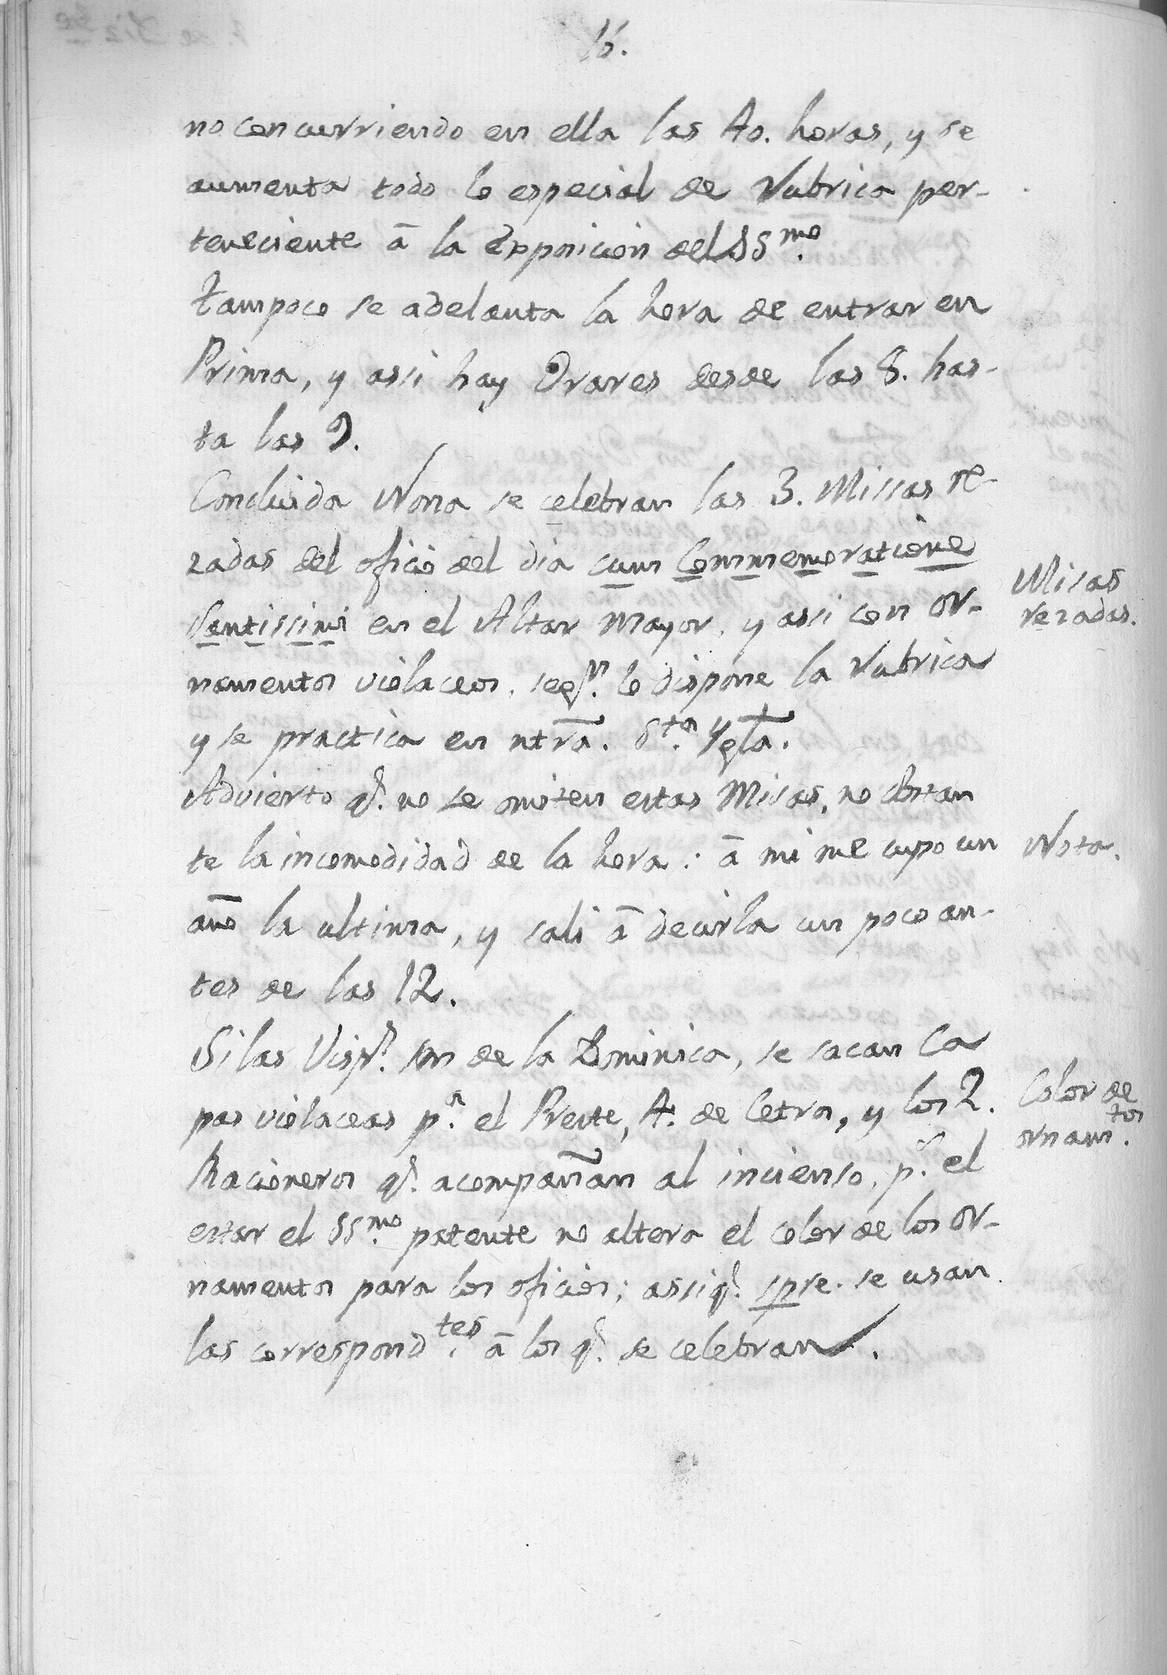 16.
no concurriendo en ella las 40. horas, y se
aumenta todo lo especial de Rubrica per-
teneciente â la Exposicion del SS.mo
tampoco se adelanta la hora de entrar en
Prima, y assi hay Orares desde las 8. has-
ta las 9.
Concluida Nona se celebran las 3. Missas re-
zadas del oficio del dia cum Commemoratione
Santissimi en el Altar mayor, y assi con or-
namentos violaceos, seg.n lo dispone la Rubrica
y se practica en ntrâ. S.ta Yglâ.
Misas
rezadas.
Advierto q.e no se omiten estas Misas, no obstan
te la incomodidad de la hora: â mi me cupo un
año la ultima, y salî â decirla un poco an-
tes de las 12.
Nota.
Si las Visp.s son de la Dominica, se sacan Ca
pas violaceas p.a el Preste, 4. de Cetros, y los 2.
Racioneros q.e acompañan al incienso, p.r el
estar el SS.mo patente no altera el color de los or-
namentos para los oficios; assi q.e spre. se usan
las correspond.tes â los q.e se celebran.
Color de
ornam.tos